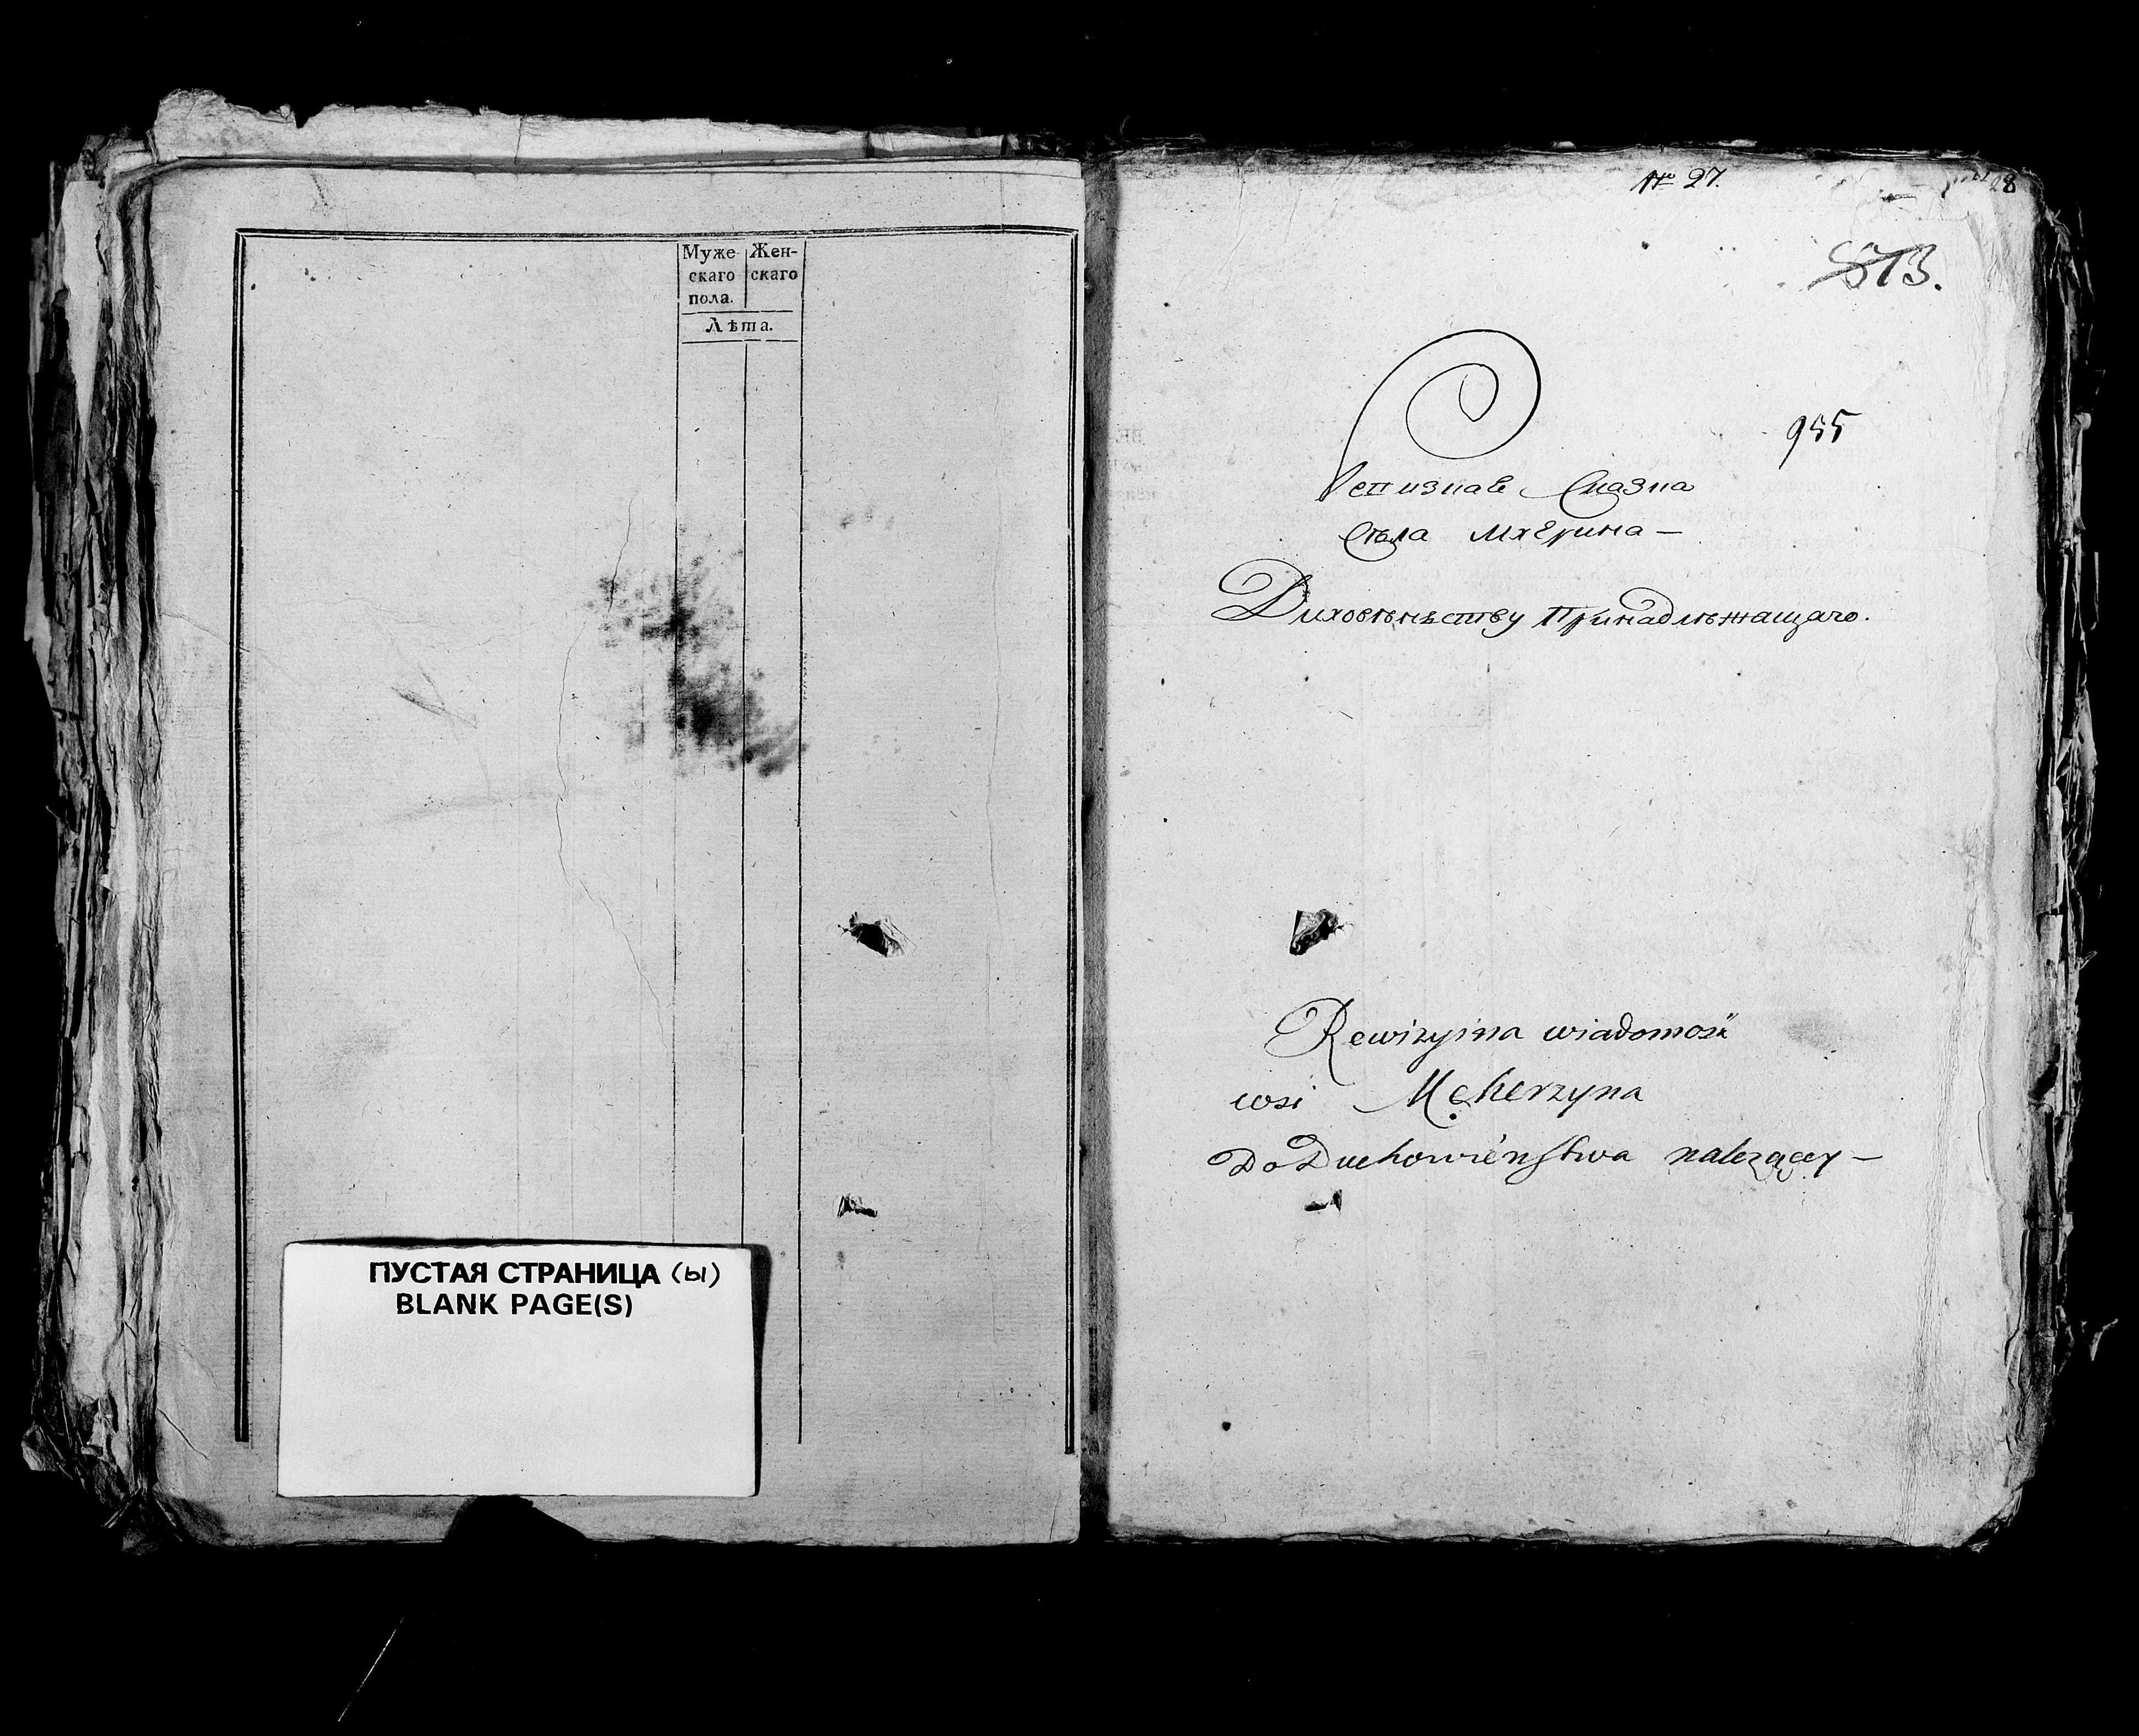 Муже
скаго
пола.
Жен-
скаго
Лѣта.
ПУСТАЯ СТРАНИЦА (ы)
BLANK PAGE(S)
№ 27.
28
873.
955
Сказка
Села Мхерина —
Духовенству Принадлежащаго.
Rewizyina wiadomość
wsi Mcherzyna
Do Duchowieństwa należącey —